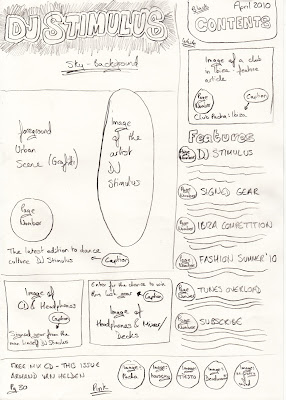 DJ STIMULUS
Sky - Background
foreground
Urban
Scene (Graffiti)
Image
of
the
artist
DJ
Stimulus
Page
Number
The latest addition to dance
culture DJ Stimulus
Caption
Image of
CD & Headphones
Caption
Signed gear from the
new line of DJ Stimulus
Enter for the chance to win
this
Caption
Image of
Headphones & Mixer/
Decks
FREE MIX CD - THIS ISSUE
ARMAND VAN HELDEN
Pg 30
Pink
Image:
Pacha
Image:
Image:
TIESTO
Image:
Image:
April 2010
CONTENTS
Image of a club
in Ibiza - feature
article
Page
Number
Caption
Club Pacha: Ibiza
Features
Page
Number
DJ STIMULUS
Page
Number
SIGNED GEAR
Page
Number
IBIZA COMPETITION
Page
Number
FASHION SUMMER '10
Page
Number
TUNES OVERLOAD
Page
Number
SUBSCRIBE